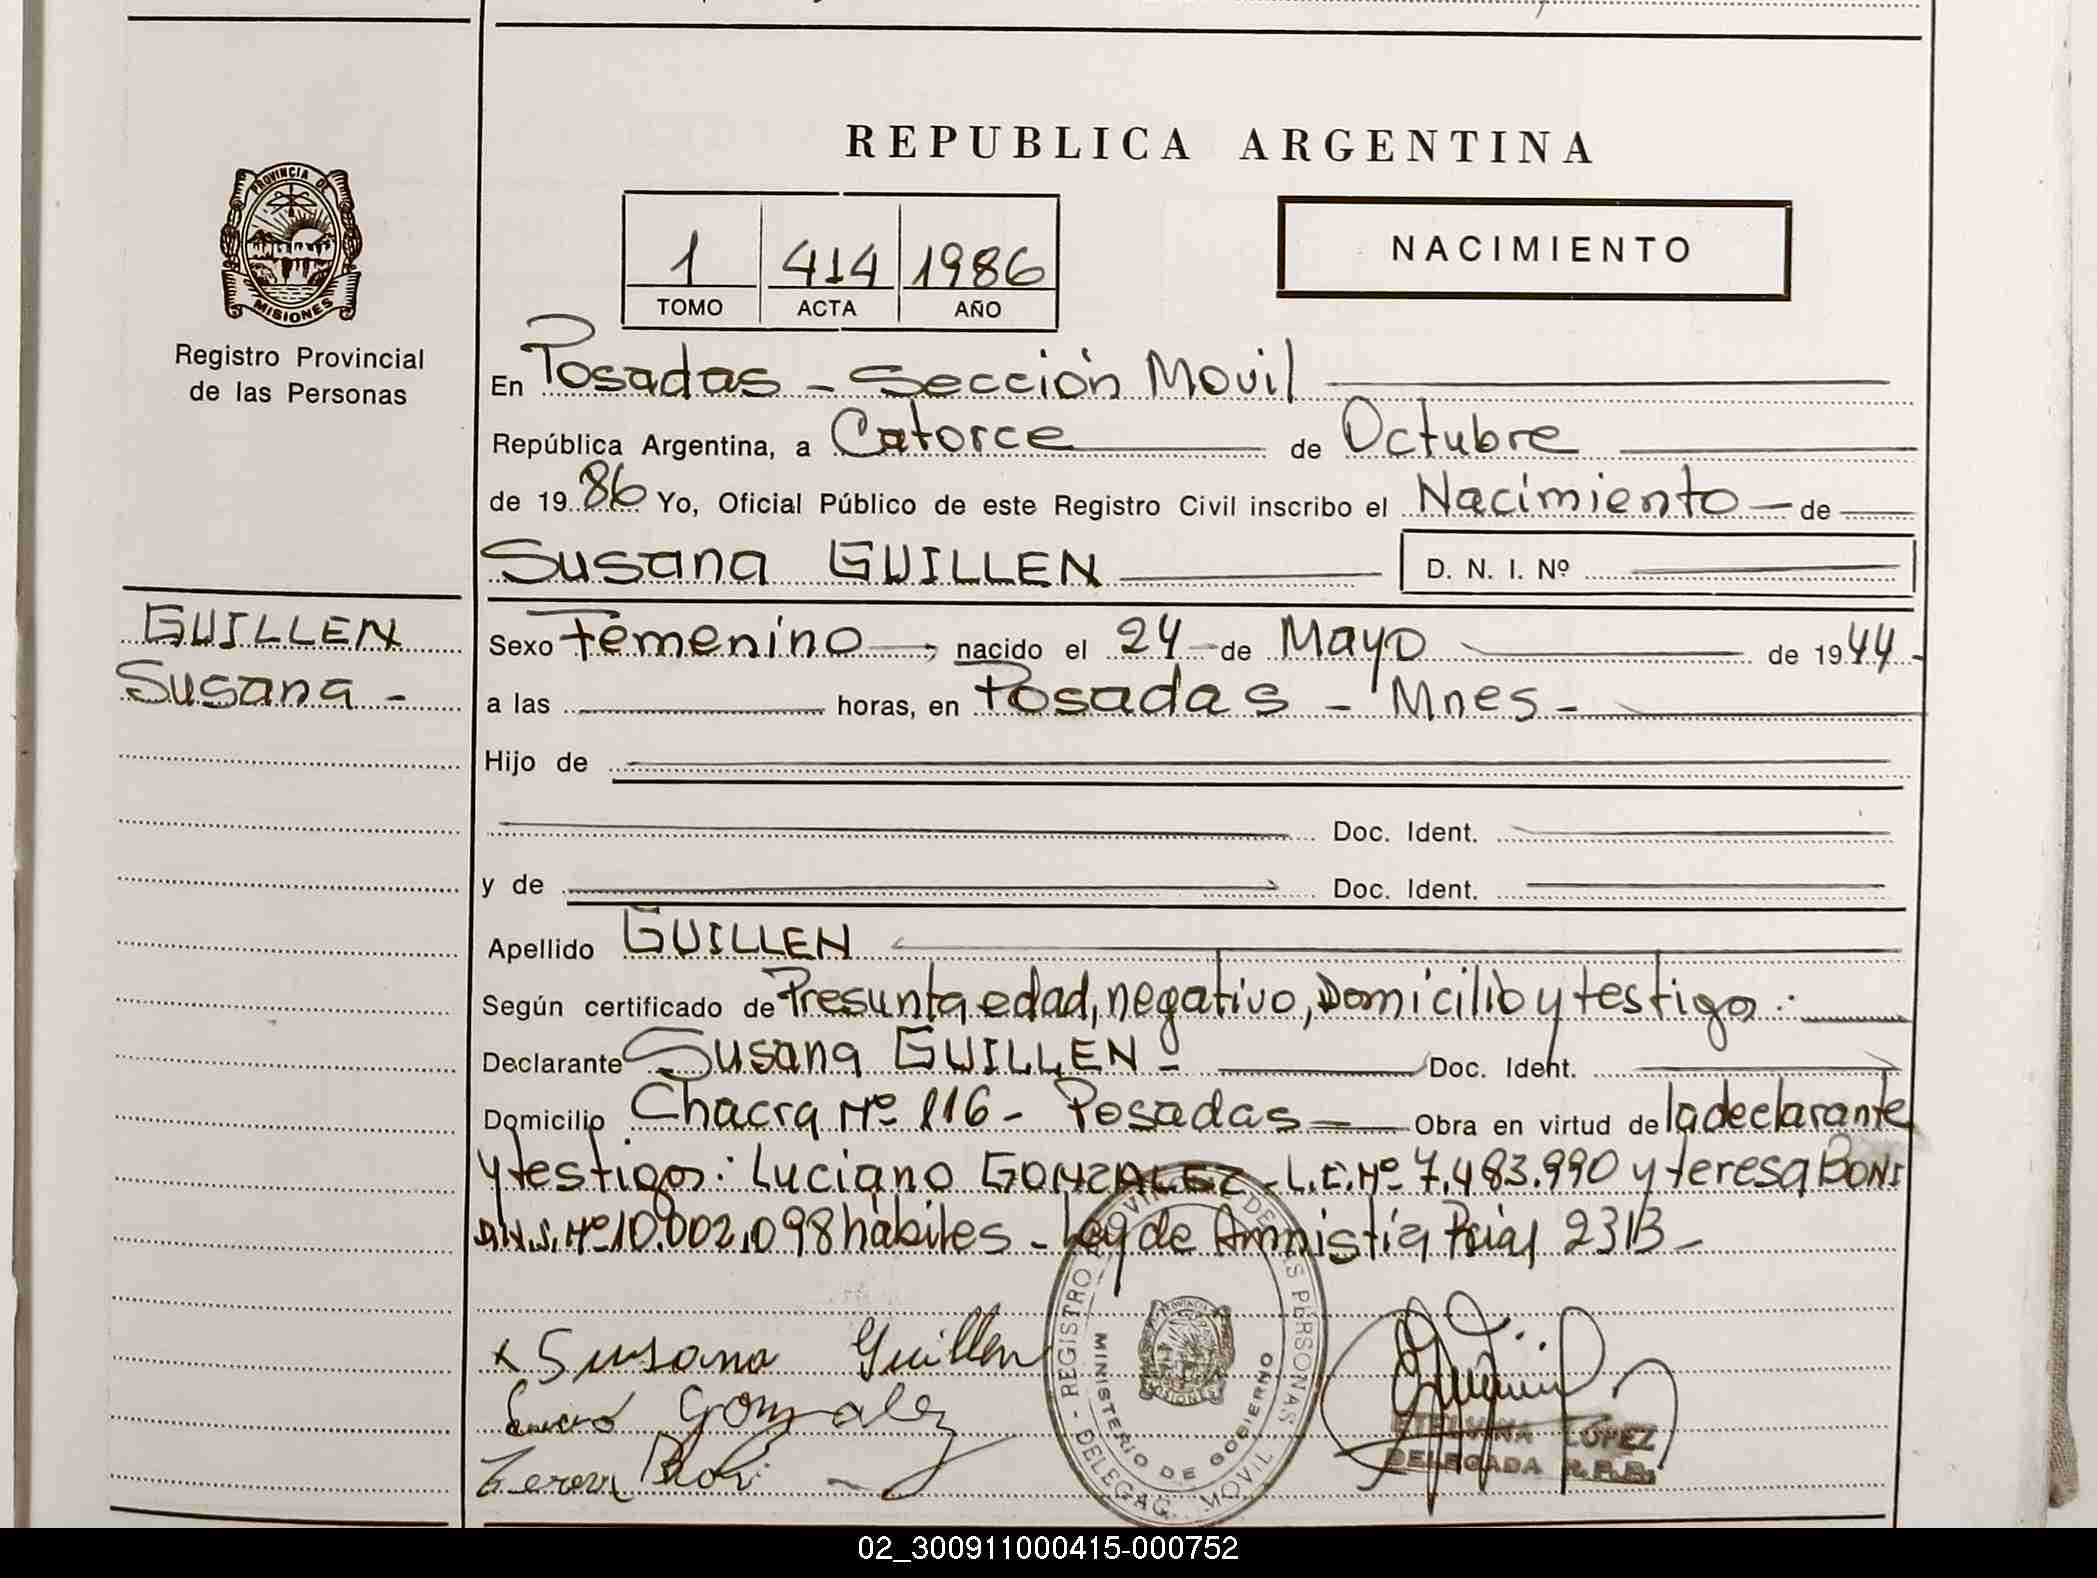 REPUBLICA ARGENTINA
PROVINCIA DE
MISIONES
Registro Provincial
de las Personas
1 414 1986
TOMO ACTA AÑO
NACIMIENTO
En Posadas - Sección Movil
República Argentina, a Catorce de Octubre
de 19 86 Yo, Oficial Público de este Registro Civil inscribo el Nacimiento - de
Susana GUILLEN D. N. I. Nº
GUILLEN
Susana -
Sexo Femenino, nacido el 24 de Mayo de 1944-
a las horas, en Posadas - Mnes -
Hijo de
Doc. Ident.
y de Doc. Ident.
Apellido GUILLEN
Según certificado de Presunta edad, negativo, Domicilio y testigo:
Declarante Susana GUILLEN - Doc. Ident.
Domicilio Chacra Nº 116 - Posadas Obra en virtud de la declarante
y testigos: Luciano GONZALEZ - L.E. Nº 7.483.990 y teresa BONI
D.N.I. Nº 10.002.098 hábiles - Ley de Amnistía 2313 -
x Susana Guillen
Gonzalez
REGISTRO PROVINCIAL DE LAS PERSONAS - DELEGAC. MOVIL
MINISTERIO DE GOBIERNO
ETELVINA LOPEZ
DELEGADA R.P.P.
02_300911000415-000752